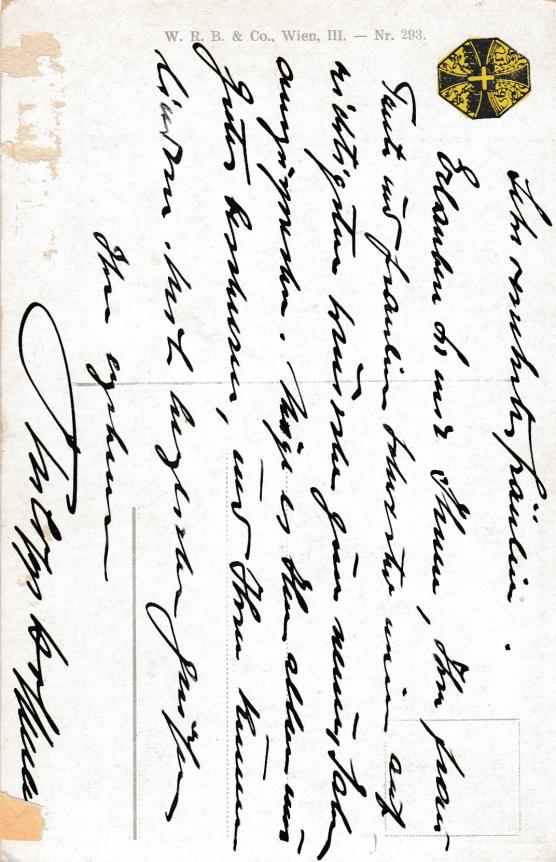 W. R. B. & Co., Wien, III. — Nr. 293.
Sehr verehrtes Fräulein.
Erlauben Sie mir Ihnen, Ihrer Frau
Tante und Fräulein Schwester meine auf
richtigsten Wünsche zum neuen Jahr
auszusprechen. Möge es Ihnen allen nur
Gutes bescheren, und Ihren Kummer
lindern. herzlichen Grüßen
Ihr ergebener